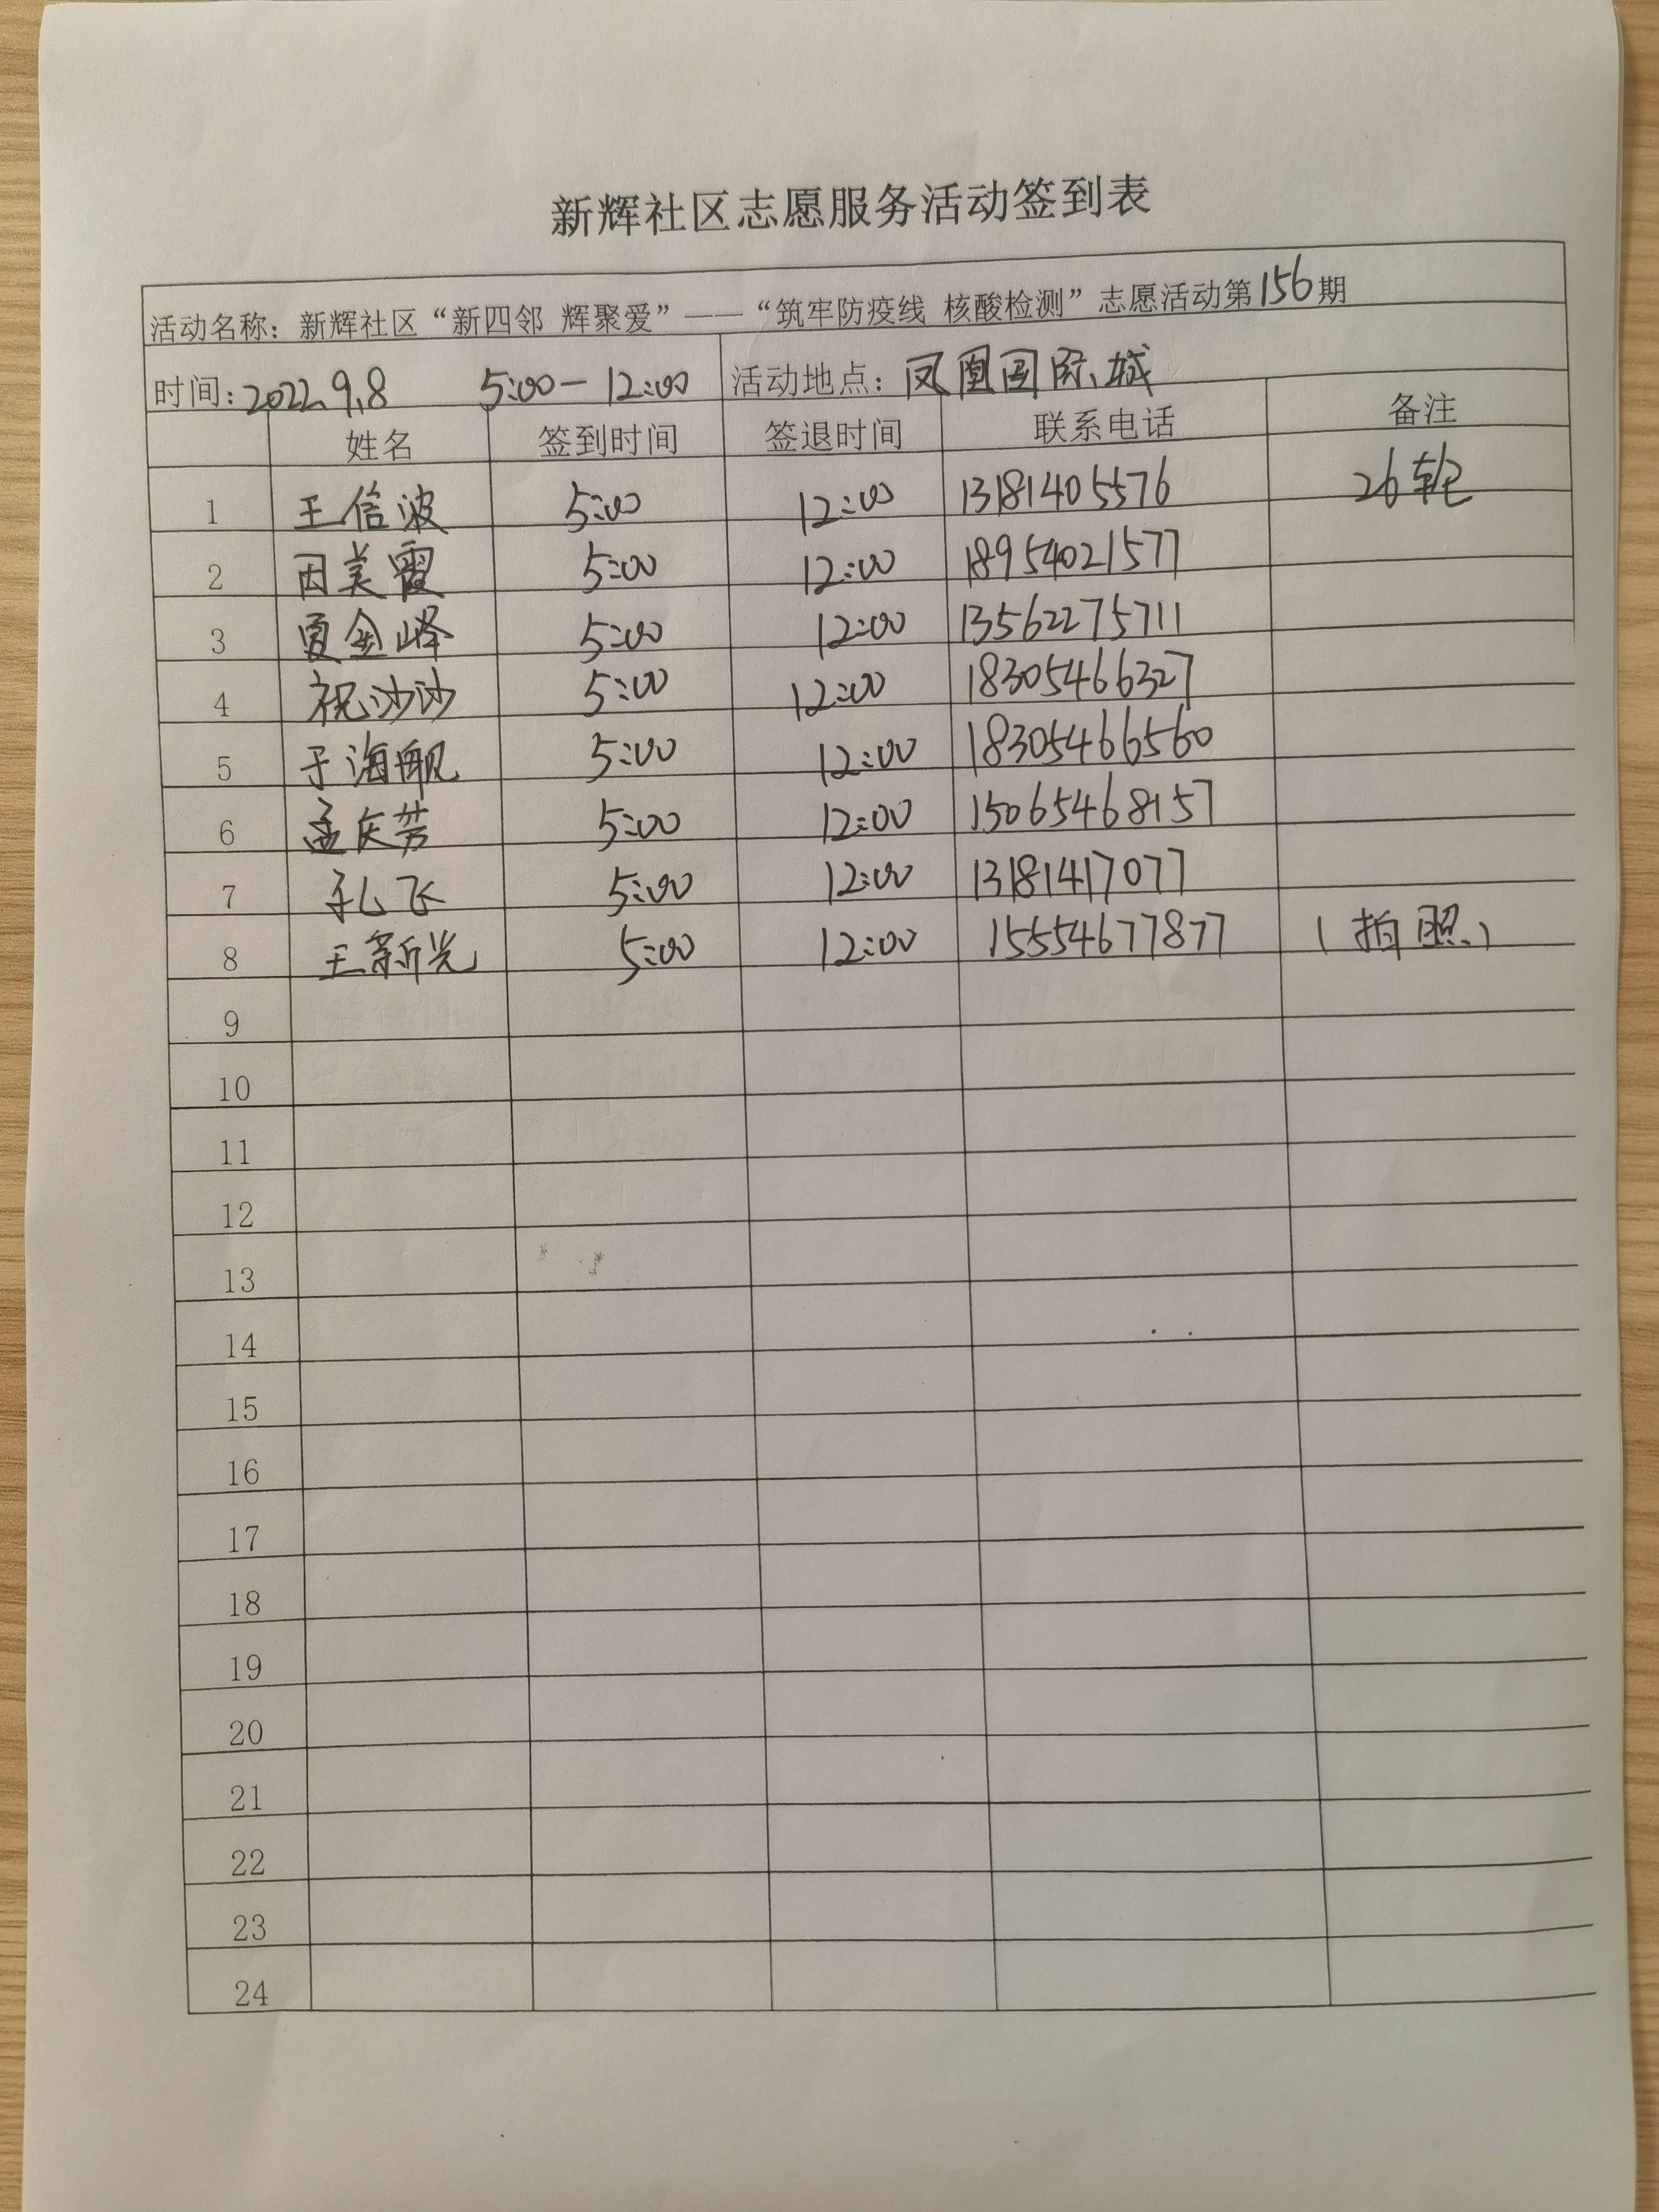 新辉社区志愿服务活动签到表
活动名称：新辉社区“新四邻 辉聚爱”——“筑牢防疫线 核酸检测”志愿活动第156期
时间：2022.9.8 5:00-12:00 活动地点：凤凰国际城
姓名 签到时间 签退时间 联系电话 备注
1 王信波 5:00 12:00 13181405576 26轮
2 田美霞 5:00 12:00 18954021577
3 夏金峰 5:00 12:00 13562275711
4 祝沙沙 5:00 12:00 18305466327
5 于海帆 5:00 12:00 18305466560
6 孟庆芳 5:00 12:00 15065468157
7 孔飞 5:00 12:00 13181417077
8 王新光 5:00 12:00 15554677877 （拍照）
9
10
11
12
13
14
15
16
17
18
19
20
21
22
23
24